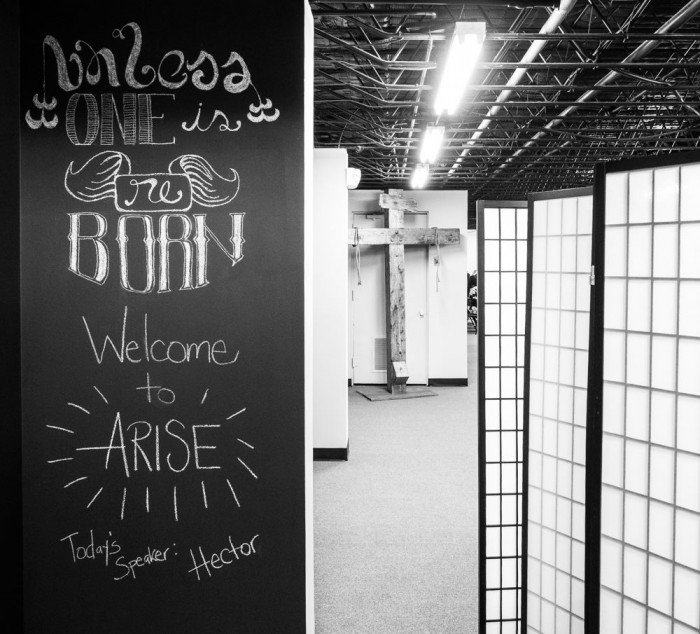 unless
ONE is
re
BORN
Welcome
to
ARISE
Today's
Speaker: Hector